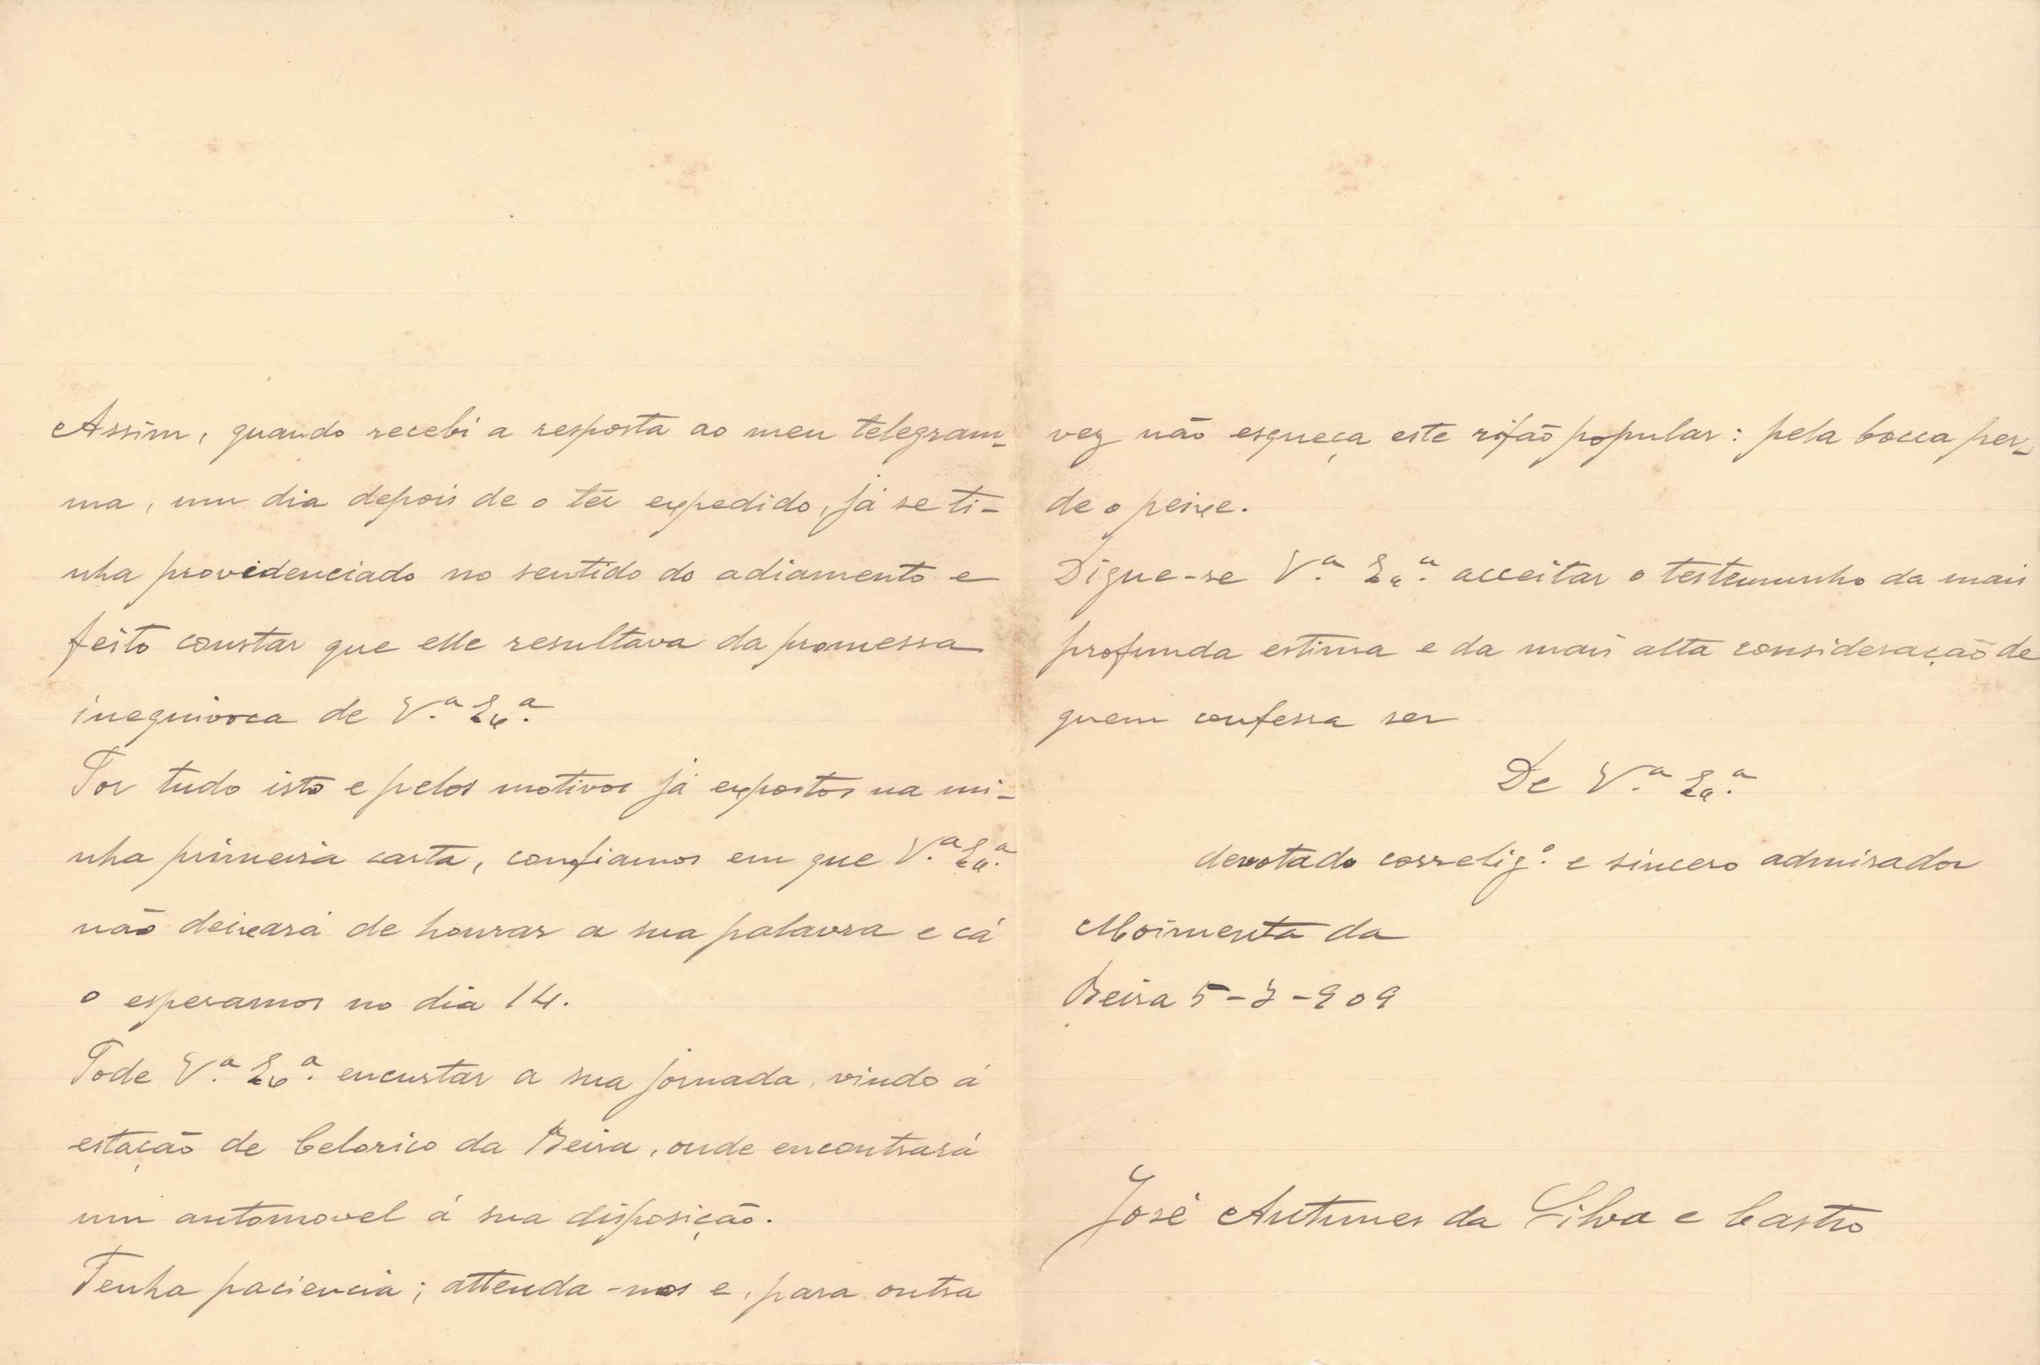 Assim, quando recebi a resposta ao meu telegram-
ma, um dia depois de o ter expedido, já se ti-
nha providenciado no sentido do adiamento e
feito constar que elle resultava da promessa
inequivoca de V.ª Ex.ª
Por tudo isto e pelos motivos já expostos na mi-
nha primeira carta, confiamos em que V.ª Ex.ª
não deixará de honrar a sua palavra e cá
o esperamos no dia 14.
Pode V.ª Ex.ª encurtar a sua jornada, vindo á
estação de Celorico da Beira, onde encontrará
um automovel á sua disposição.
Tenha paciencia; attenda-nos e, para outra
vez não esqueça este rifão popular: pela bocca per-
de o peixe.
Digne-se V.ª Ex.ª acceitar o testemunho da mais
profunda estima e da mais alta consideração de
quem confessa ser
De V.ª Ex.ª
devotado correlig.º e sincero admirador
Moimenta da
Beira 5-3-909
José Antunes da Silva e Castro